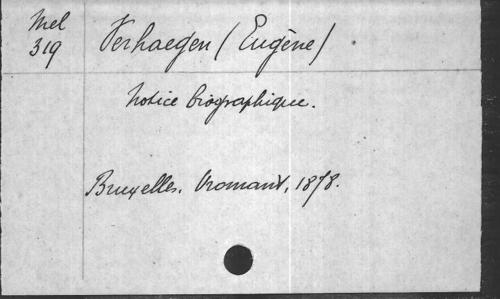 Mel
319
Verhaegen (Eugène)
Notice biographique.
Bruxelles, Vromant, 1878.